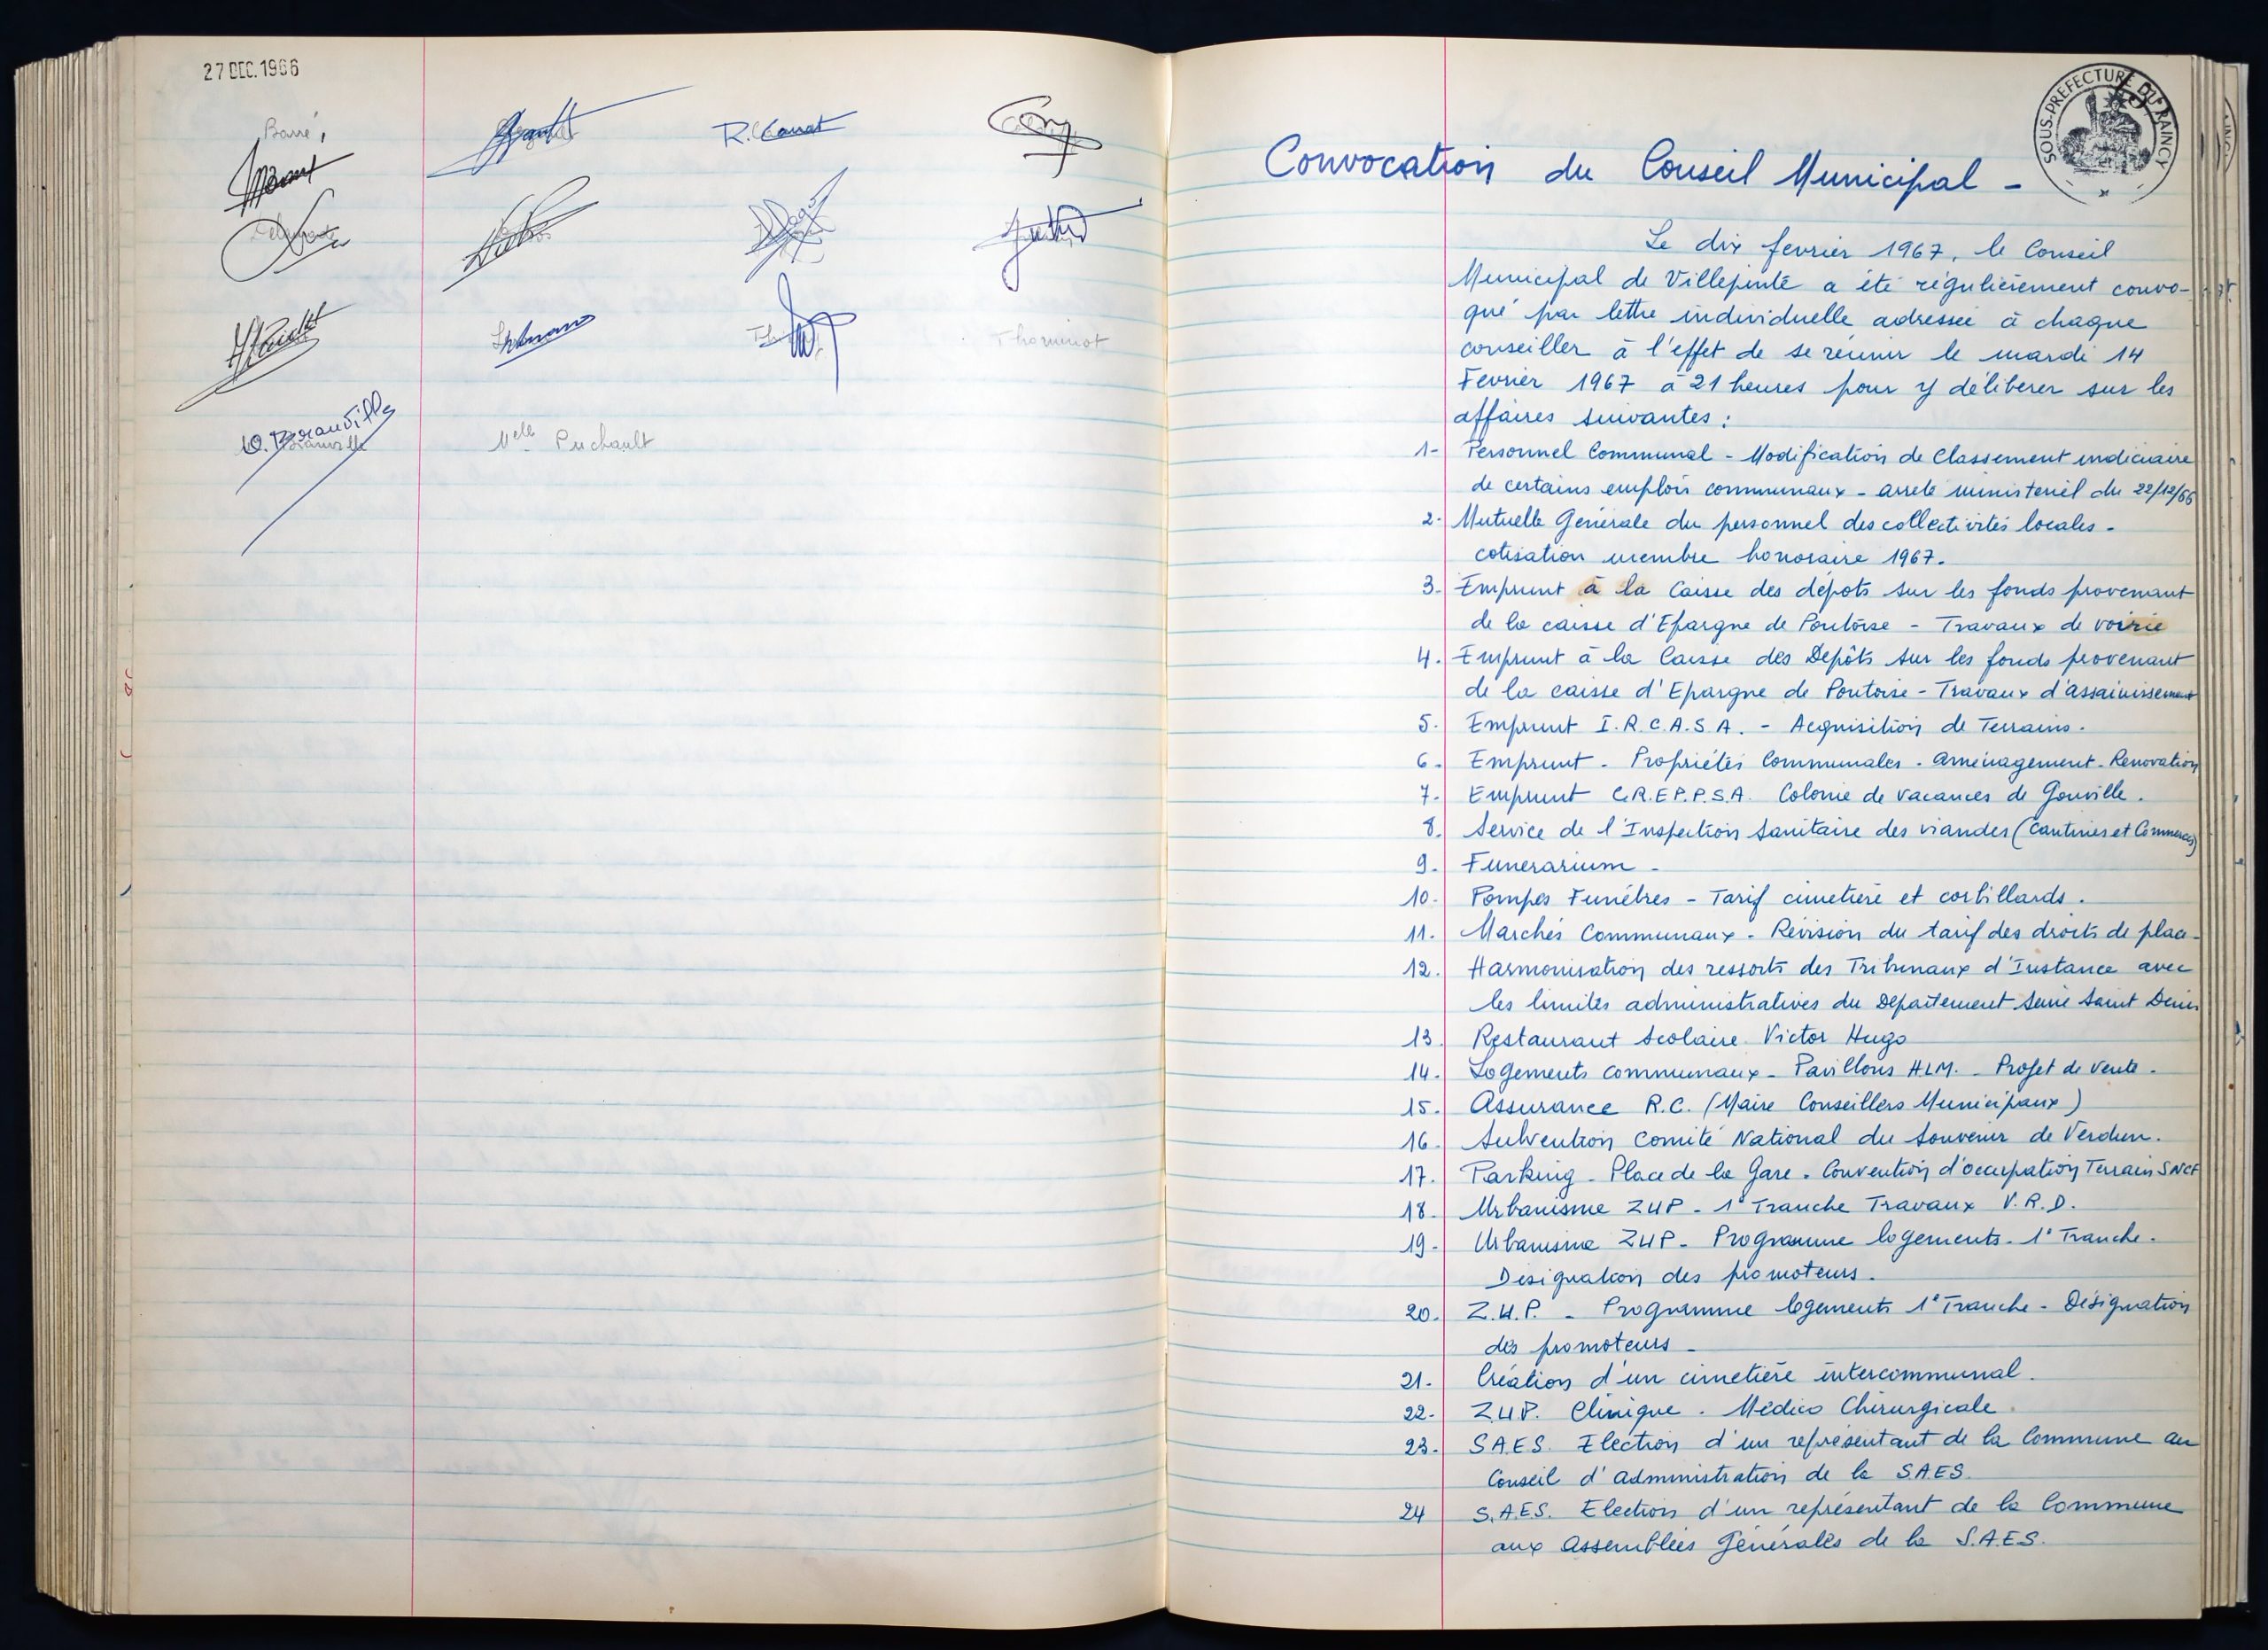 27 DEC. 1966
Barré,
R. Canat
Thominot
O. Beranville
Melle Puchault
SOUS-PREFECTURE DU RAINCY
Convocation du Conseil Municipal -
Le dix fevrier 1967, le Conseil
Municipal de Villepinte a été régulièrement convo-
qué par lettre individuelle adressée à chaque
conseiller à l'effet de se réunir le mardi 14
Fevrier 1967 à 21 heures pour y délibérer sur les
affaires suivantes :
1- Personnel Communal - Modification de Classement indiciaire
de certains emplois communaux - arreté ministeriel du 22/12/66
2- Mutuelle Générale du personnel des collectivités locales -
cotisation membre honoraire 1967.
3. Emprunt à la Caisse des dépots sur les fonds provenant
de la caisse d'Epargne de Pontoise - Travaux de voirie
4. Emprunt à la Caisse des Depôts sur les fonds provenant
de la caisse d'Epargne de Pontoise - Travaux d'assainissement
5. Emprunt I.R.C.A.S.A. - Acquisition de Terrains.
6. Emprunt - Propriétés Communales - aménagement - Renovation
7. Emprunt C.R.E.P.P.S.A. Colonie de vacances de Gouville.
8. Service de l'Inspection Sanitaire des viandes (Cantines et Commerces)
9. Funerarium -
10. Pompes Funèbres - Tarif cimetière et corbillards.
11. Marchés Communaux - Révision du tarif des droits de place
12. Harmonisation des ressorts des Tribunaux d'Instance avec
les limites administratives du Département Seine Saint Denis
13. Restaurant scolaire Victor Hugo
14. Logements communaux - Pavillons HLM. - Projet de vente.
15. Assurance R.C. (Maire Conseillers Municipaux)
16. Subvention Comité National du Souvenir de Verdun.
17. Parking - Place de la Gare. Convention d'occupation Terrain SNCF
18. Urbanisme ZUP - 1° Tranche Travaux V.R.D.
19. Urbanisme ZUP - Programme logements - 1° Tranche.
Désignation des promoteurs.
20. Z.U.P. - Programme logements 1° Tranche - Désignation
des promoteurs -
21. Création d'un cimetière intercommunal.
22. Z.U.P. Clinique - Médico Chirurgicale
23. S.A.E.S. Election d'un représentant de la Commune au
Conseil d'administration de la S.A.E.S.
24 S.A.E.S. Election d'un représentant de la Commune
aux Assemblées Générales de la S.A.E.S.